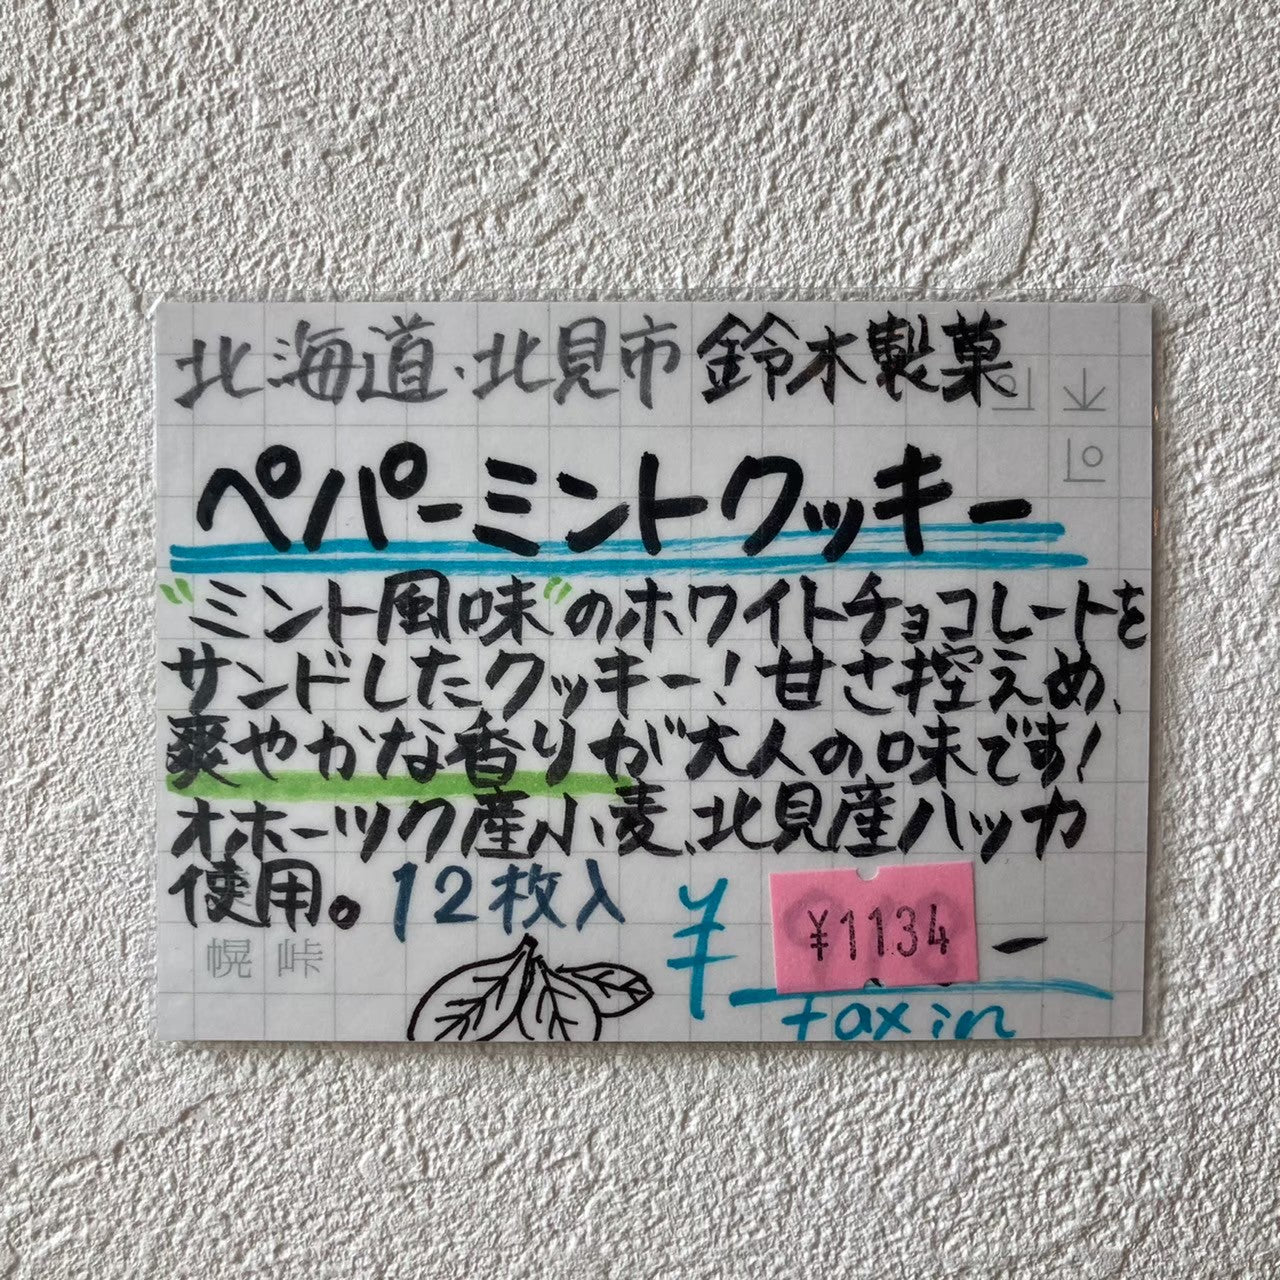 北海道・北見市 鈴木製菓
ペパーミントクッキー
"ミント風味"のホワイトチョコレートを
サンドしたクッキー！甘さ控えめ、
爽やかな香りが大人の味です！
オホーツク産小麦、北見産ハッカ
使用。12枚入
¥ ¥1134 -
tax in
幌 峠